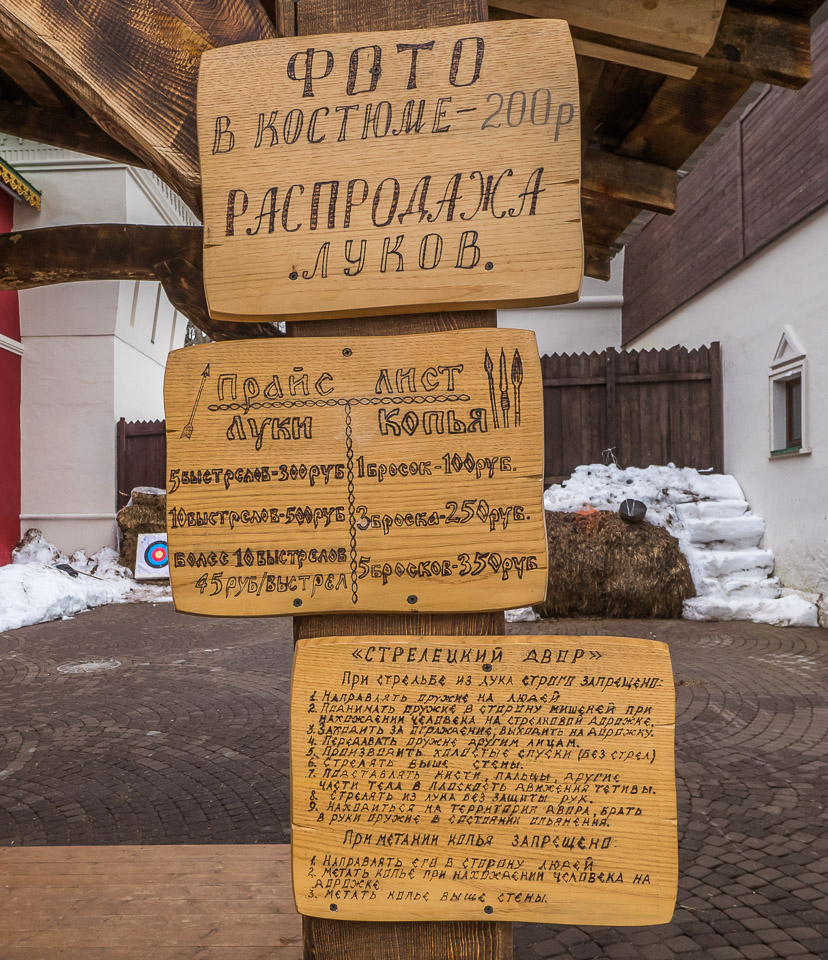 ФОТО
В КОСТЮМЕ-200р
РАСПРОДАЖА
.ЛУКОВ.
Прайс лист
Луки Копья
5 выстрелов-300руб 1 бросок-100руб.
10 выстрелов-500руб 3 броска-250руб.
более 10 выстрелов 5 бросков-350руб
45 руб/выстрел
«СТРЕЛЕЦКИЙ ДВОР»
При стрельбе из лука строго запрещено:
1. Направлять оружие на людей
2. Поднимать оружие в сторону мишеней при
нахождении человека на стрелковой дорожке.
3. Заходить за ограждение, выходить на дорожку.
4. Передавать оружие другим лицам.
5. Производить холостые спуски (без стрел)
6. Стрелять выше стены.
7. Подставлять кисти, пальцы, другие
части тела в плоскость движения тетивы.
8. Стрелять из лука без защиты рук.
9. Находиться на территории двора, брать
в руки оружие в состоянии опьянения.
При метании копья запрещено:
1. Направлять его в сторону людей
2. Метать копье при нахождении человека на
дорожке
3. Метать копье выше стены.